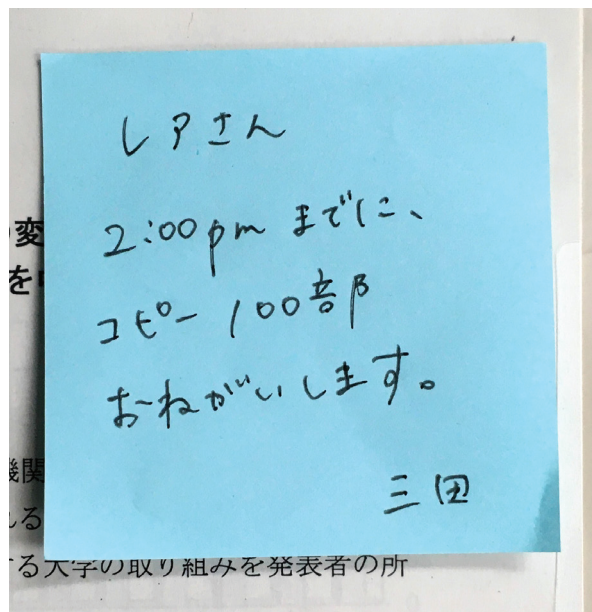 変
を
レアさん
2:00pm までに、
コピー 100部
おねがいします。
三田
機関
れる
する大学の取り組みを発表者の所